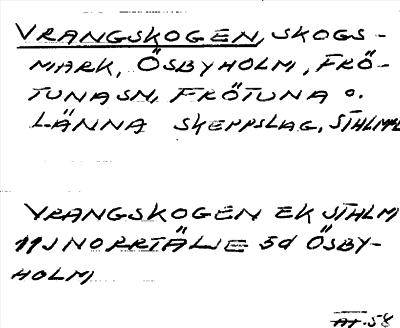 VRANGSKOGEN, SKOGS-
MARK, ÖSBYHOLM, FRÖ-
TUNA SN, FRÖTUNA O.
LÄNNA SKEPPSLAG, STHLMS L
VRANGSKOGEN EK STHLM
11J NORRTÄLJE 5d ÖSBY-
HOLM
AT. 58